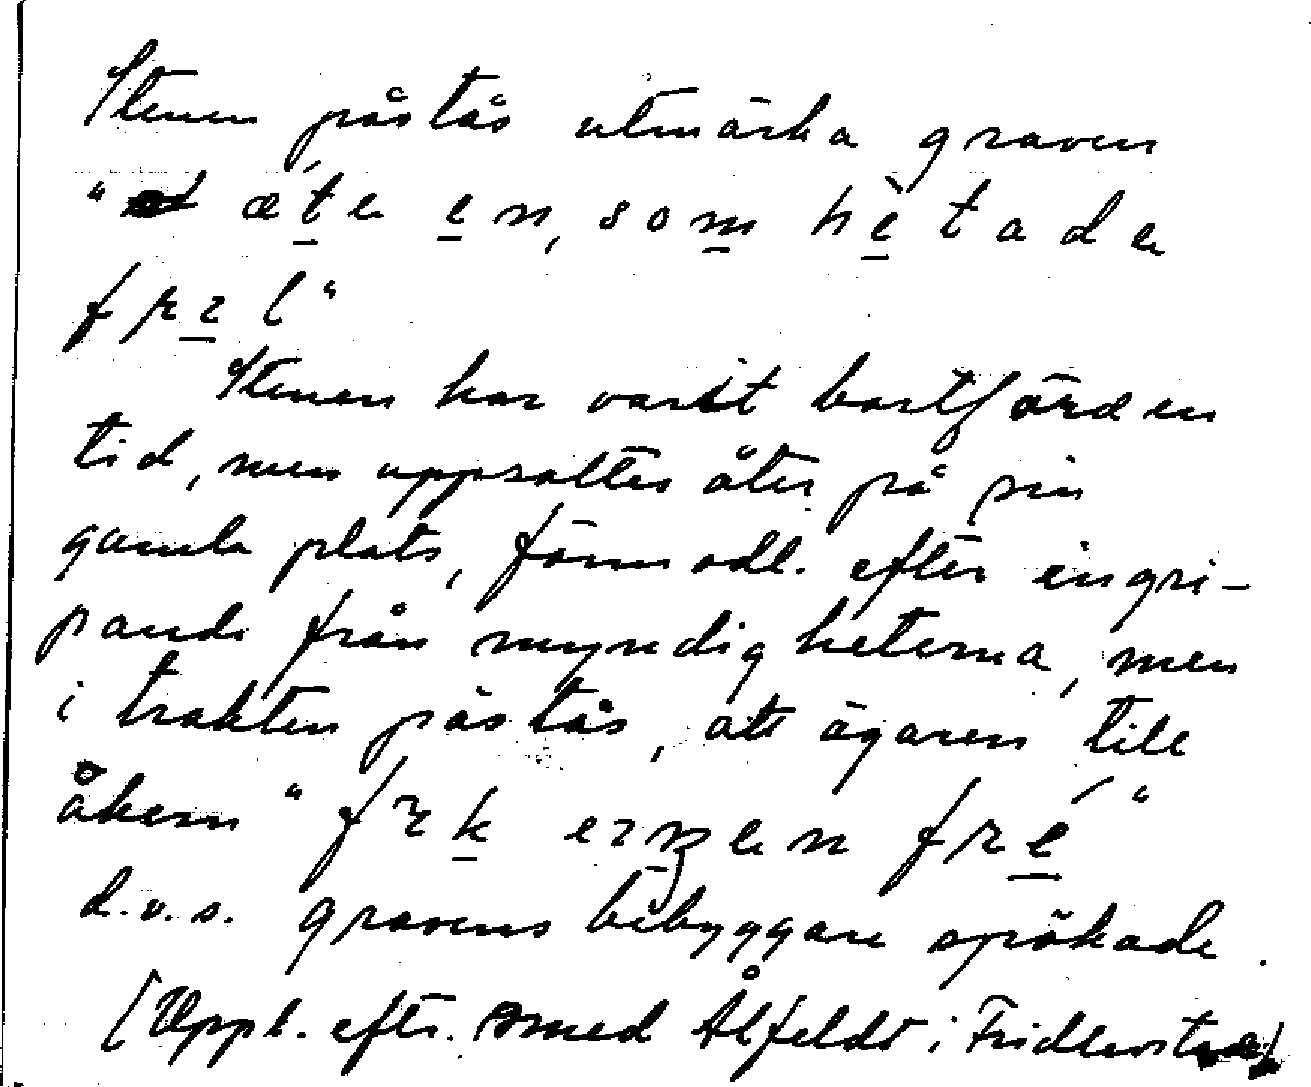 Stenen påstås utmärka graven
"æ´te en, som hètade
frel"
Stenen har varit bortförd en
tid, men uppsattes åter på sin
gamla plats, förmodl. efter ingri-
pande från myndigheterna, men
i trakten påstås, att ägaren till
åkern "fek eŋen fré"
d.v.s. gravens bebyggare spökade.
(Uppt. eftr. smed Ålfeldt i Fridlevstad)